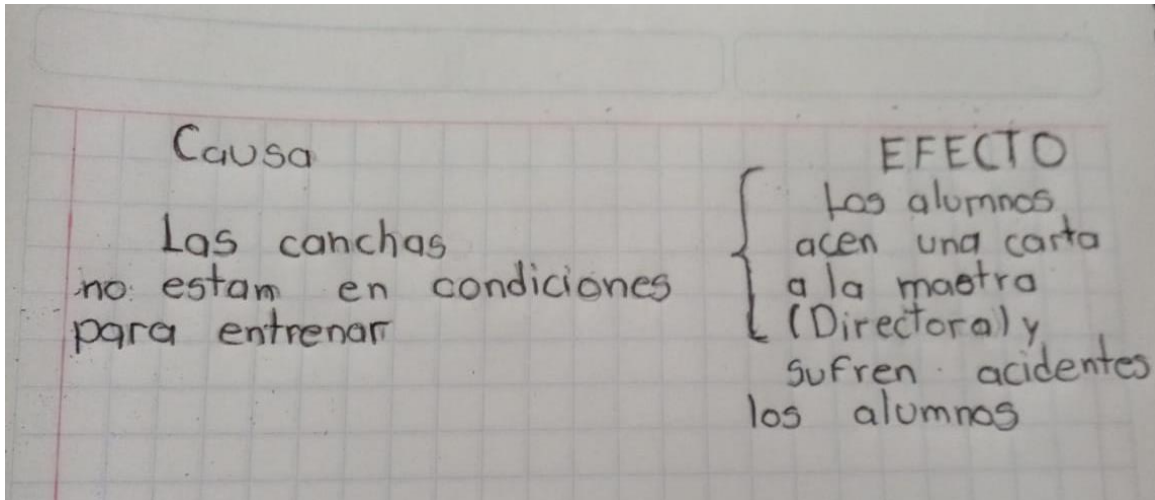 Causa
Las canchas
no estam en condiciones
para entrenar
EFECTO
Los alumnos
acen una carta
a la maetra
(Directora) y
sufren acidentes
los alumnos